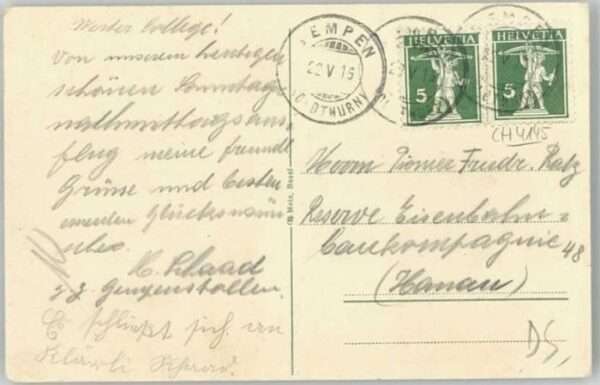 Werter College!
Von unserem heutigen
schönen Sonntag
nachmittagsaus
flug meine freundl.
Grüsse und besten
Glückwün
sche.
Schaad
z. Z.
E schliesst sich an
Kläwli Schaad.
KEMPEN
22 V 15
HELVETIA
5
HELVETIA
5
CH 4145
© Metz, Basel
Herrn Pionier Friedr. Ratz
Reserve Eisenbahn-
baukompagnie 48
(Hanau)
DS,